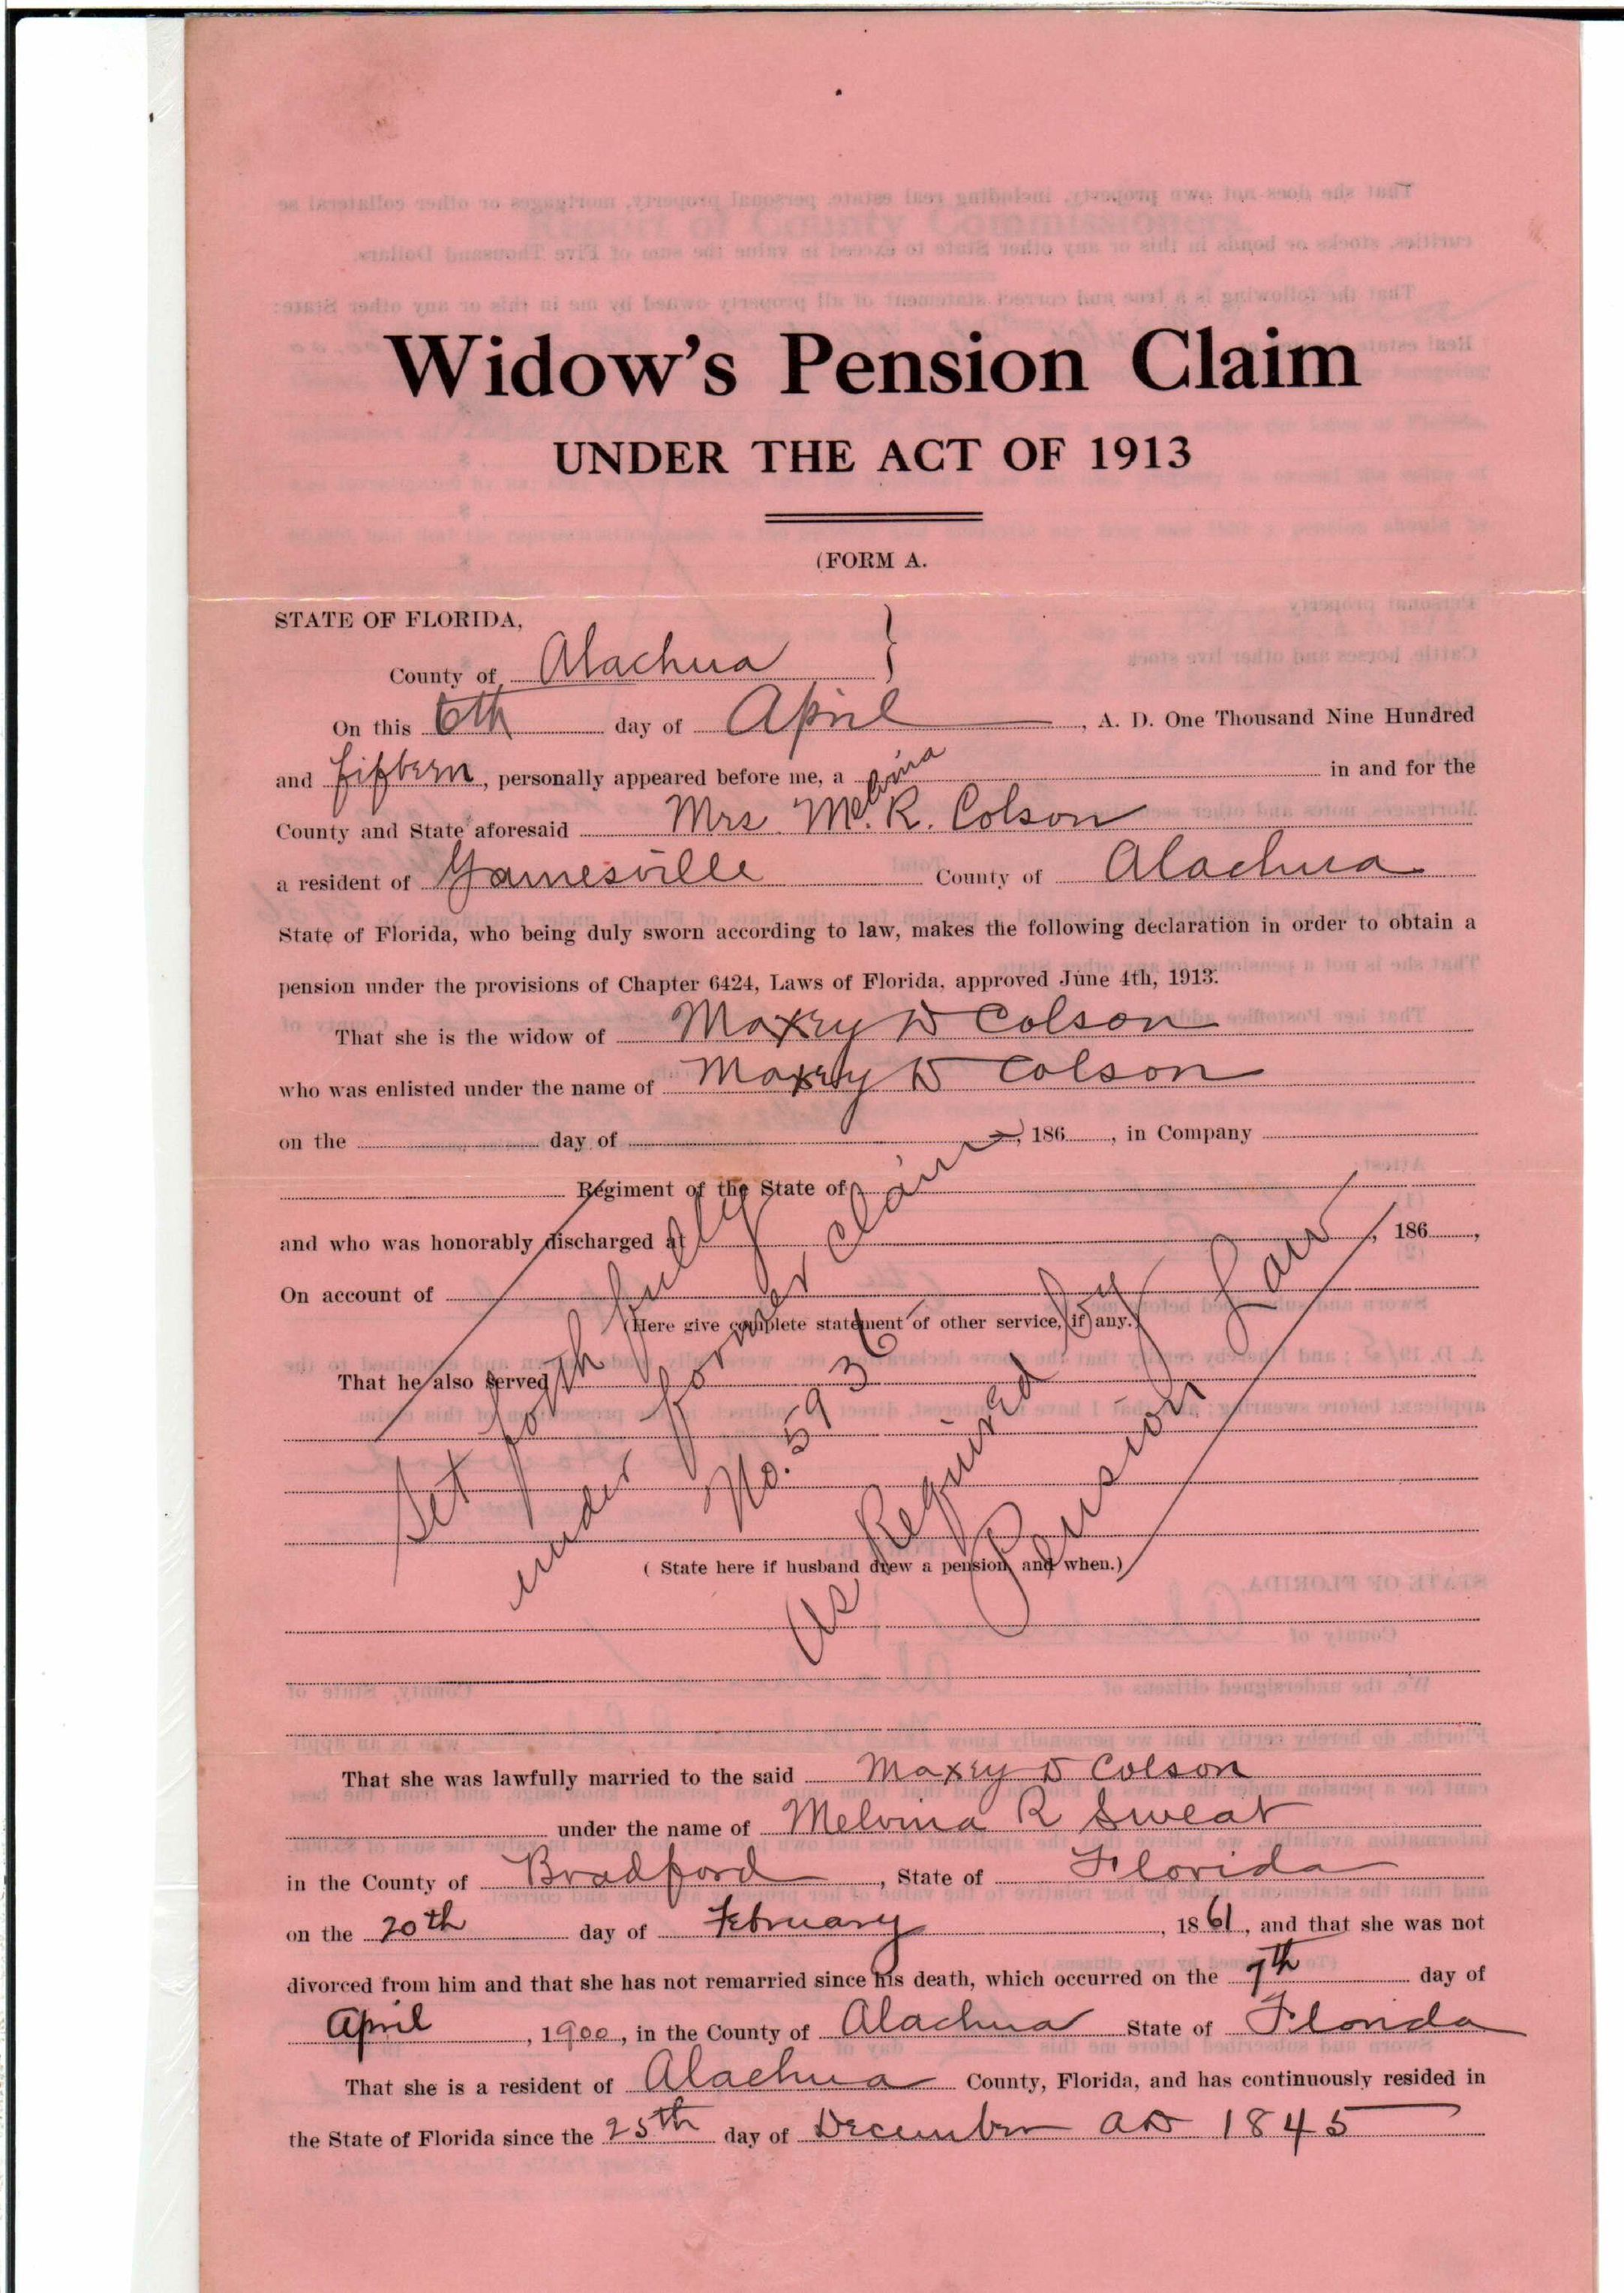 Widow's Pension Claim
UNDER THE ACT OF 1913
(FORM A.
STATE OF FLORIDA,
County of Alachua }
On this 6th day of April, A. D. One Thousand Nine Hundred
and fifteen, personally appeared before me, a in and for the
County and State aforesaid Mrs. Melvina R. Colson
a resident of Gainesville County of Alachua
State of Florida, who being duly sworn according to law, makes the following declaration in order to obtain a
pension under the provisions of Chapter 6424, Laws of Florida, approved June 4th, 1913.
That she is the widow of Maxey D Colson
who was enlisted under the name of Maxey D Colson
on the day of , 186 , in Company
Regiment of the State of
and who was honorably discharged at , 186 ,
On account of
(Here give complete statement of other service, if any.)
That he also served
Set forth fully
under former claim
No. 5936
As Required by
Pension Law
( State here if husband drew a pension and when.)
That she was lawfully married to the said Maxey D Colson
under the name of Melvina R Sweat
in the County of Bradford, State of Florida
on the 20th day of February, 1861, and that she was not
divorced from him and that she has not remarried since his death, which occurred on the 7th day of
April, 1900, in the County of Alachua State of Florida
That she is a resident of Alachua County, Florida, and has continuously resided in
the State of Florida since the 25th day of December AD 1845